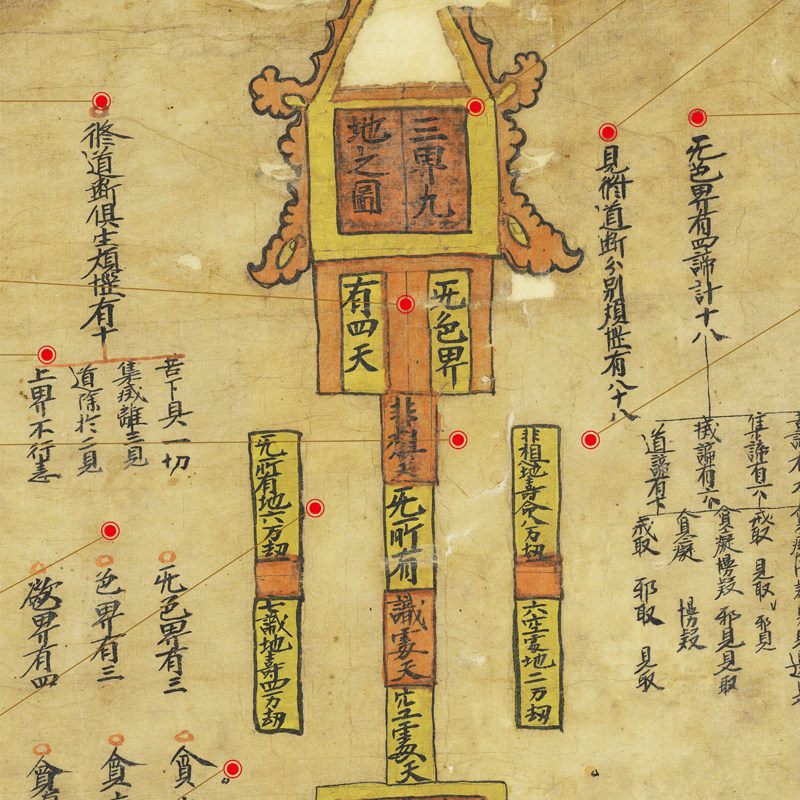 三界九
地之圖
无色界
有四天
非想天
无所有
識處天
空處天
无色界有四諦計十八
集諦有六
滅諦有六
道諦有七
戒取 見取 邪見
貪癡慢疑 邪見見取
貪癡 慢疑
戒取 邪取 見取
見修道斷分別煩惱有八十八
非想地壽命八万劫
六空處地二万劫
无所有地六万劫
七識地壽四万劫
修道斷俱生煩惱有十
苦下具一切
集滅離三見
道除於二見
上界不行恚
无色界有三
色界有三
欲界有四
貪
貪
貪